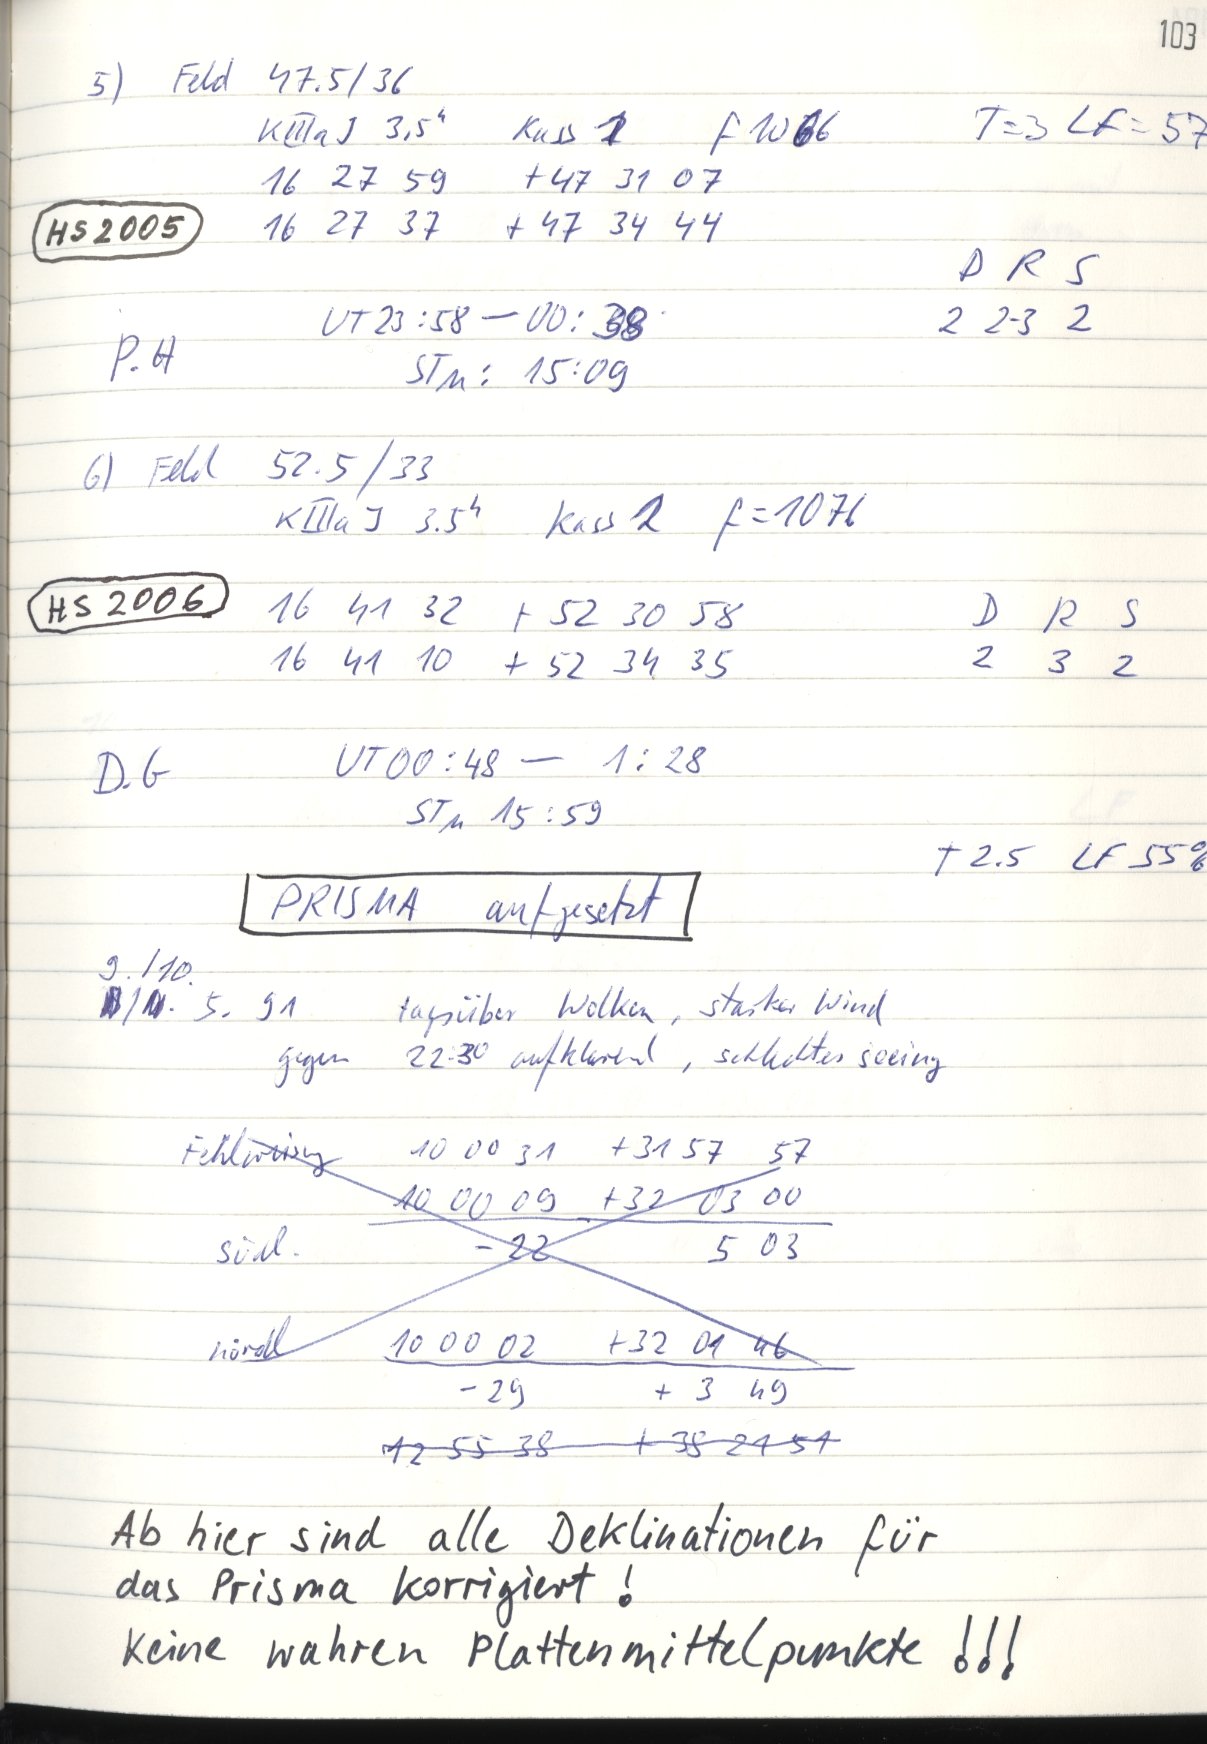 103
5) Feld 47.5/36
KIIIaJ 3.5h Kass 1 f 1066 T=3 LF=57
16 27 59 +47 31 07
HS2005 16 27 37 +47 34 44
D R S
UT 23:58 — 00:38 2 2-3 2
P.H
STM: 15:09
6) Feld 52.5/33
KIIIaJ 3.5h Kass 2 f=1076
HS 2006 16 41 32 +52 30 58 D R S
16 41 10 +52 34 35 2 3 2
D.G UT 00:48 — 1:28
STM 15:59
T 2.5 LF 55%
PRISMA aufgesetzt
9./10.
5. 91 tagsüber Wolken, starker Wind
gegen 22:30 aufklarend, schlechtes seeing
10 00 31 +31 57 57
10 00 09 +32 03 00
südl. -22 5 03
nördl 10 00 02 +32 01 46
-29 + 3 49
12 55 38 +38 21 51
Ab hier sind alle Deklinationen für
das Prisma korrigiert!
Keine wahren Plattenmittelpunkte!!!